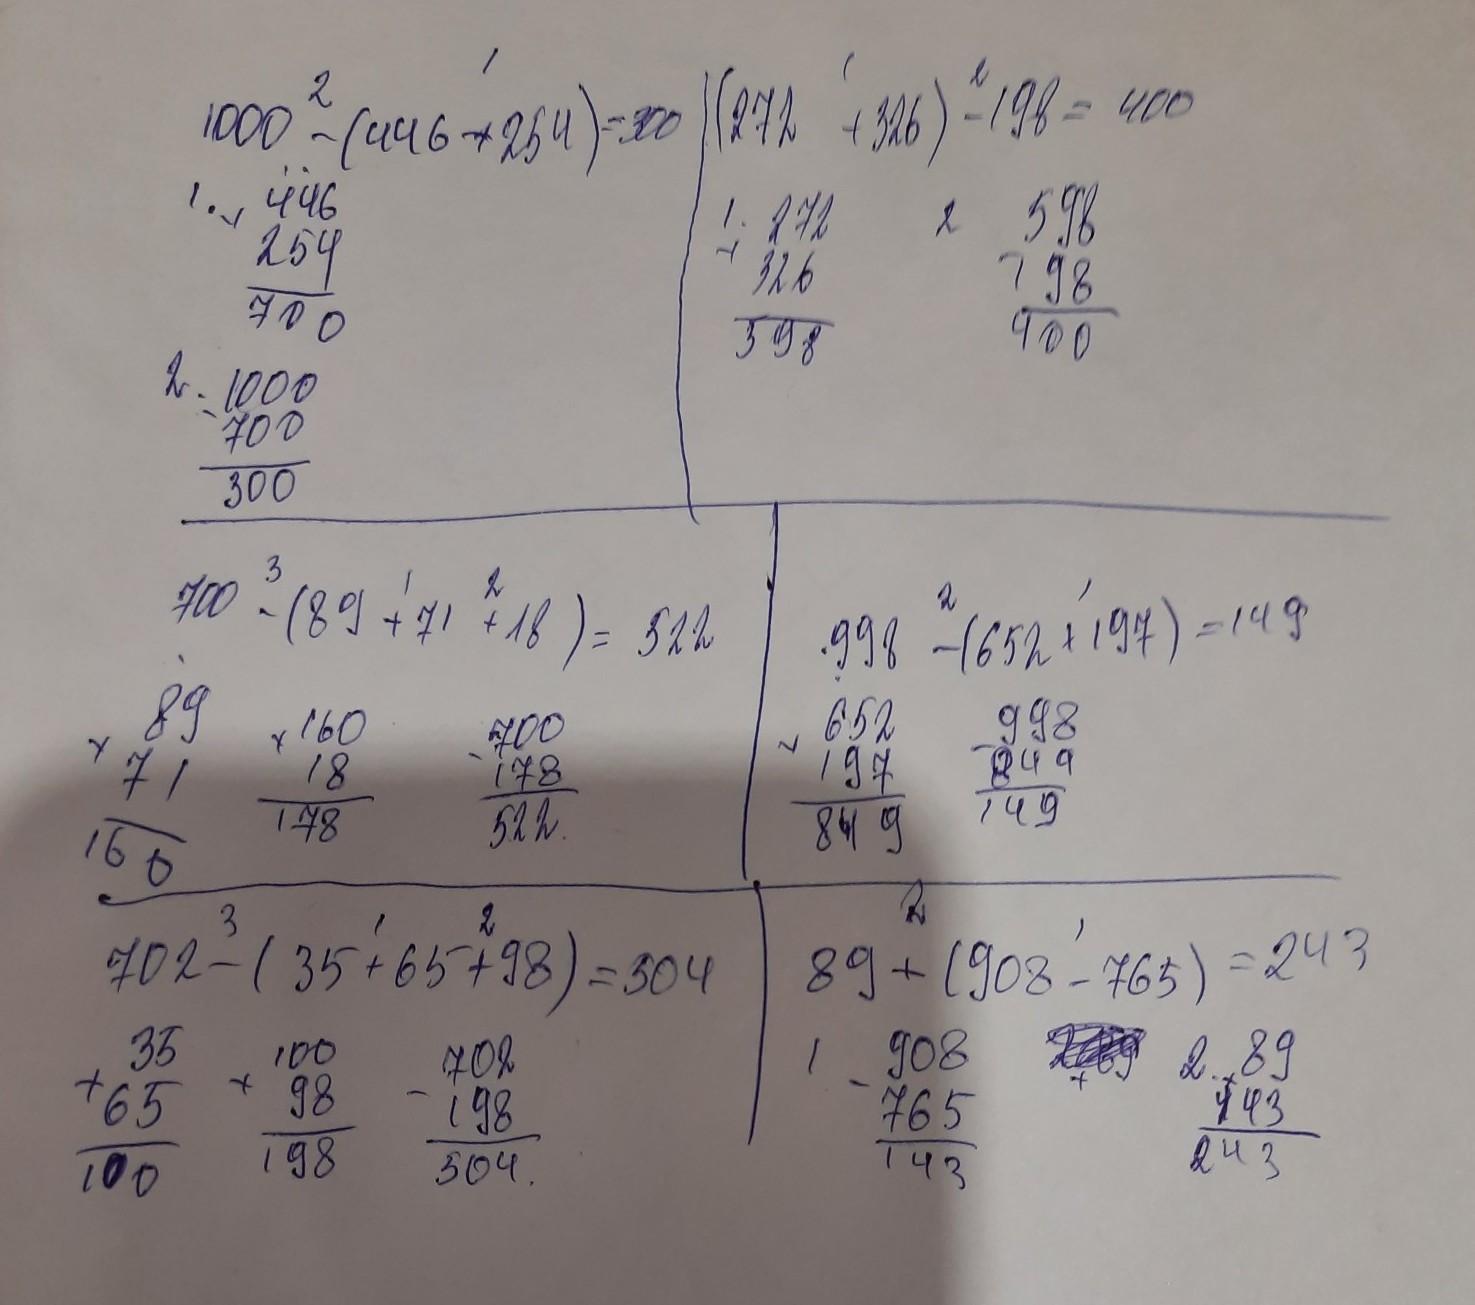 1000 - (446 + 254) = 300
2 1
1. + 446
254
700
2. 1000
- 700
300
(272 + 326) - 198 = 400
1 2
1. 272
+ 326
598
2 598
- 198
400
700 - (89 + 71 + 18) = 522
3 1 2
89
+ 71
160
+ 160
18
178
700
- 178
522.
998 - (652 + 197) = 149
2 1
+ 652
197
849
998
- 849
149
702 - (35 + 65 + 98) = 504
3 1 2
35
+ 65
100
100
+ 98
198
702
- 198
504.
89 + (908 - 765) = 243
2 1
1 908
- 765
143
2. + 89
143
243